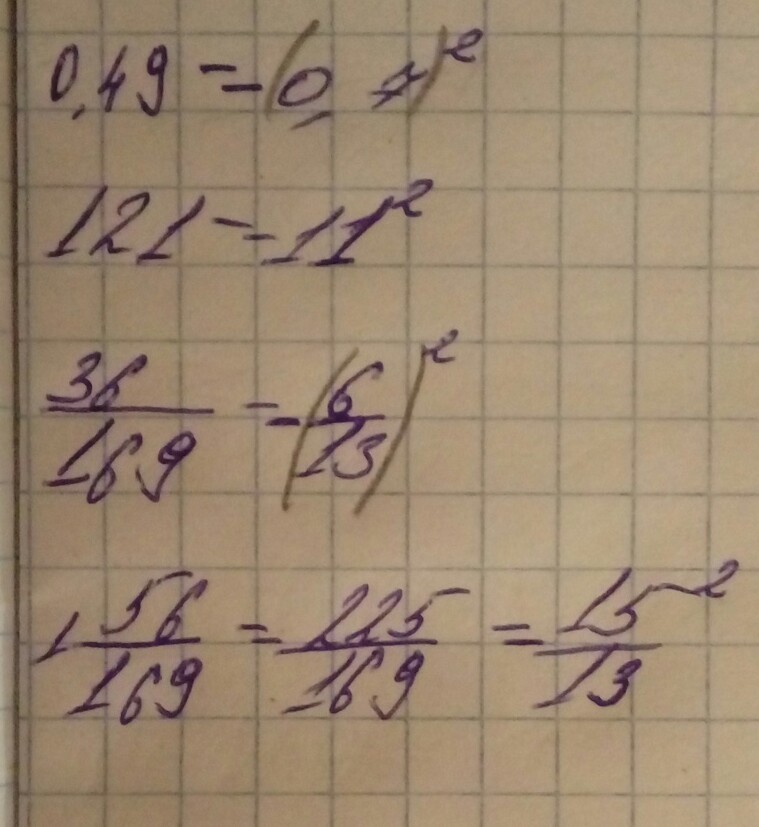 0,49 = (0,7)²
121 = 11²
36/169 = (6/13)²
1 56/169 = 225/169 = 15²/13